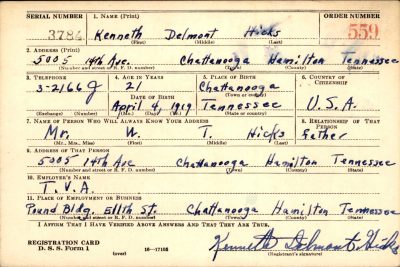 SERIAL NUMBER 1. NAME (Print) ORDER NUMBER
3784 Kenneth Delmont Hicks 559
(First) (Middle) (Last)
2. ADDRESS (Print)
5005 14th Ave. Chattanooga Hamilton Tennessee
(Number and street or R. F. D. number) (Town) (County) (State)
3. TELEPHONE 4. AGE IN YEARS 5. PLACE OF BIRTH 6. COUNTRY OF CITIZENSHIP
3-2166 J 21 Chattanooga
DATE OF BIRTH (Town or county)
April 4, 1919 Tennessee U.S.A.
(Exchange) (Number) (Mo.) (Day) (Yr.) (State or country)
7. NAME OF PERSON WHO WILL ALWAYS KNOW YOUR ADDRESS 8. RELATIONSHIP OF THAT PERSON
Mr. W. T. Hicks father
(Mr., Mrs., Miss) (First) (Middle) (Last)
9. ADDRESS OF THAT PERSON
5005 14th Ave Chattanooga Hamilton Tennessee
(Number and street or R. F. D. number) (Town) (County) (State)
10. EMPLOYER'S NAME
T.V.A.
11. PLACE OF EMPLOYMENT OR BUSINESS
Pound Bldg. E11th St. Chattanooga Hamilton Tennessee
(Number and street or R. F. D. number) (Town) (County) (State)
I AFFIRM THAT I HAVE VERIFIED ABOVE ANSWERS AND THAT THEY ARE TRUE.
REGISTRATION CARD
D. S. S. Form 1 (over) 16—17105 Kenneth Delmont Hicks
(Registrant's signature)